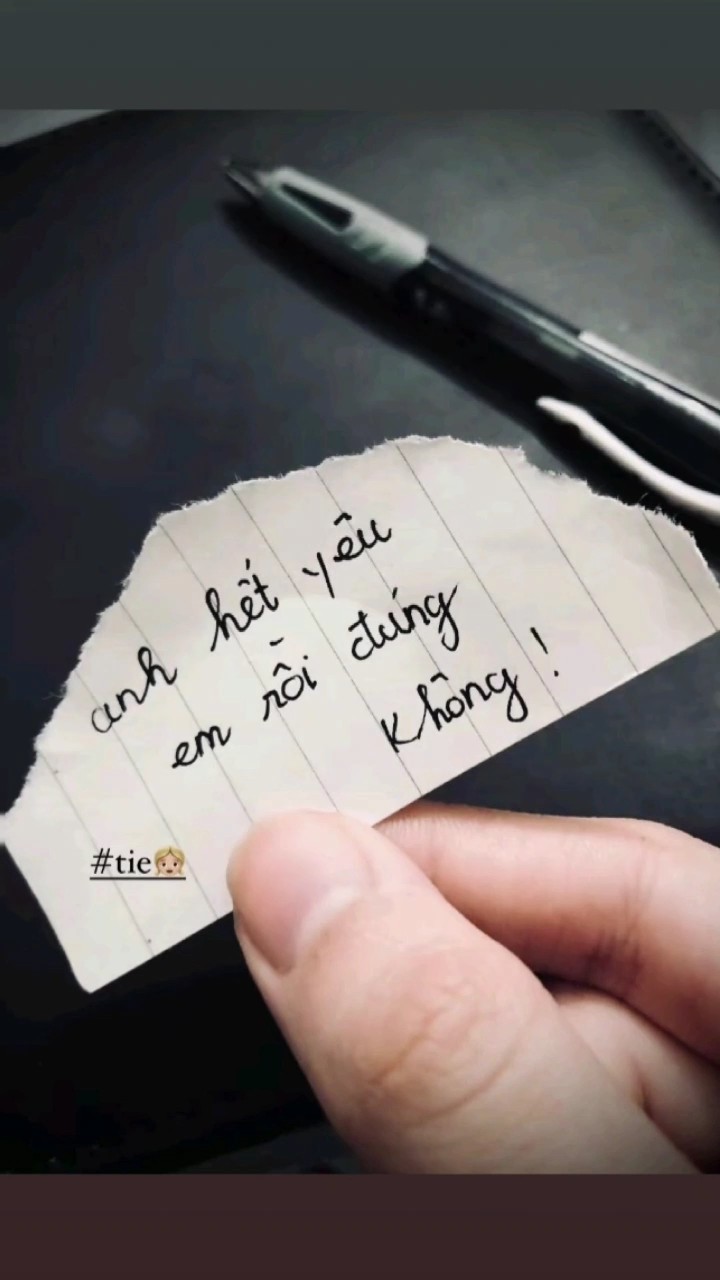 anh hết yêu
em rồi đúng
không !
#tie👧🏼